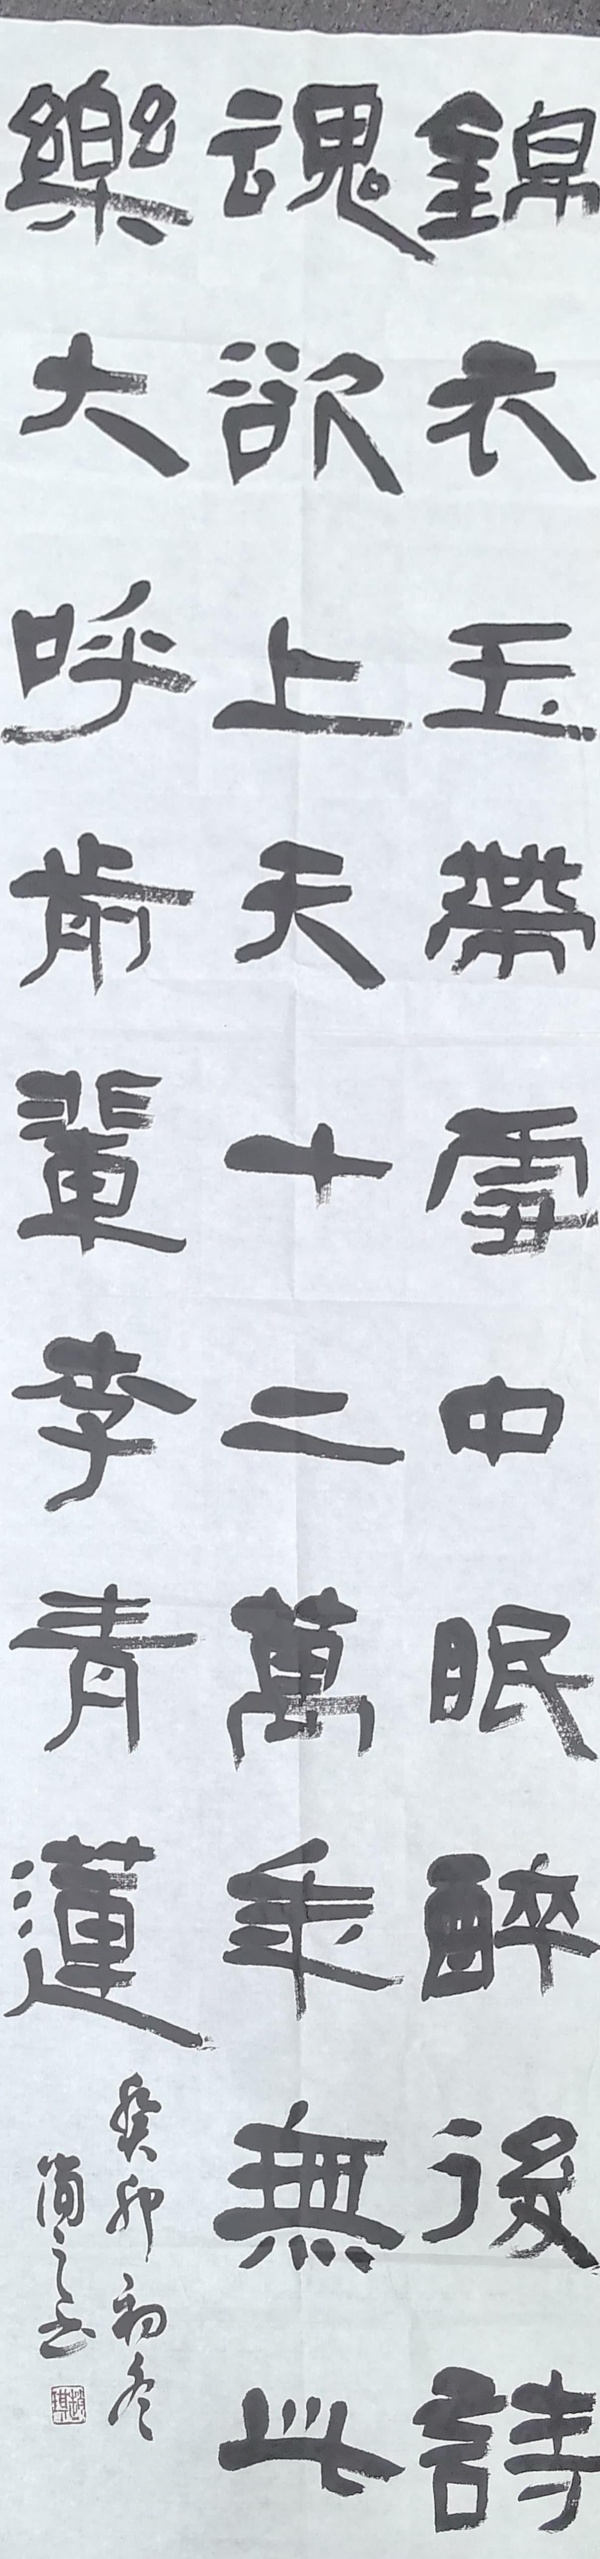 錦衣玉帶雪中眠醉後詩
魂欲上天十二萬年無此
樂大呼前輩李青蓮
癸卯初冬
简之书